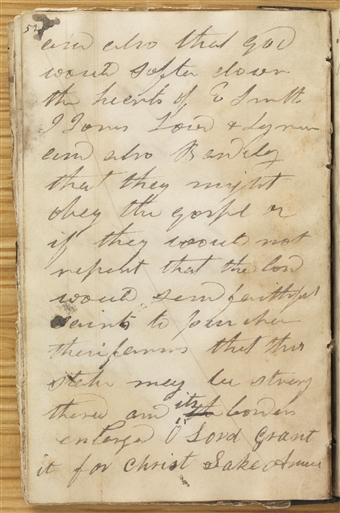 52
and also that God
would soften down
the hearts of E Smith
J Jones Loud & Lyman
and also Bentley
that they might
obey the gospel or
if they would not
repent that the Lord
would send faithful
saints to purchase
their farms that this
stake may be strong
thened and its borders
enlarged O Lord grant
it for Christ Sake Amen